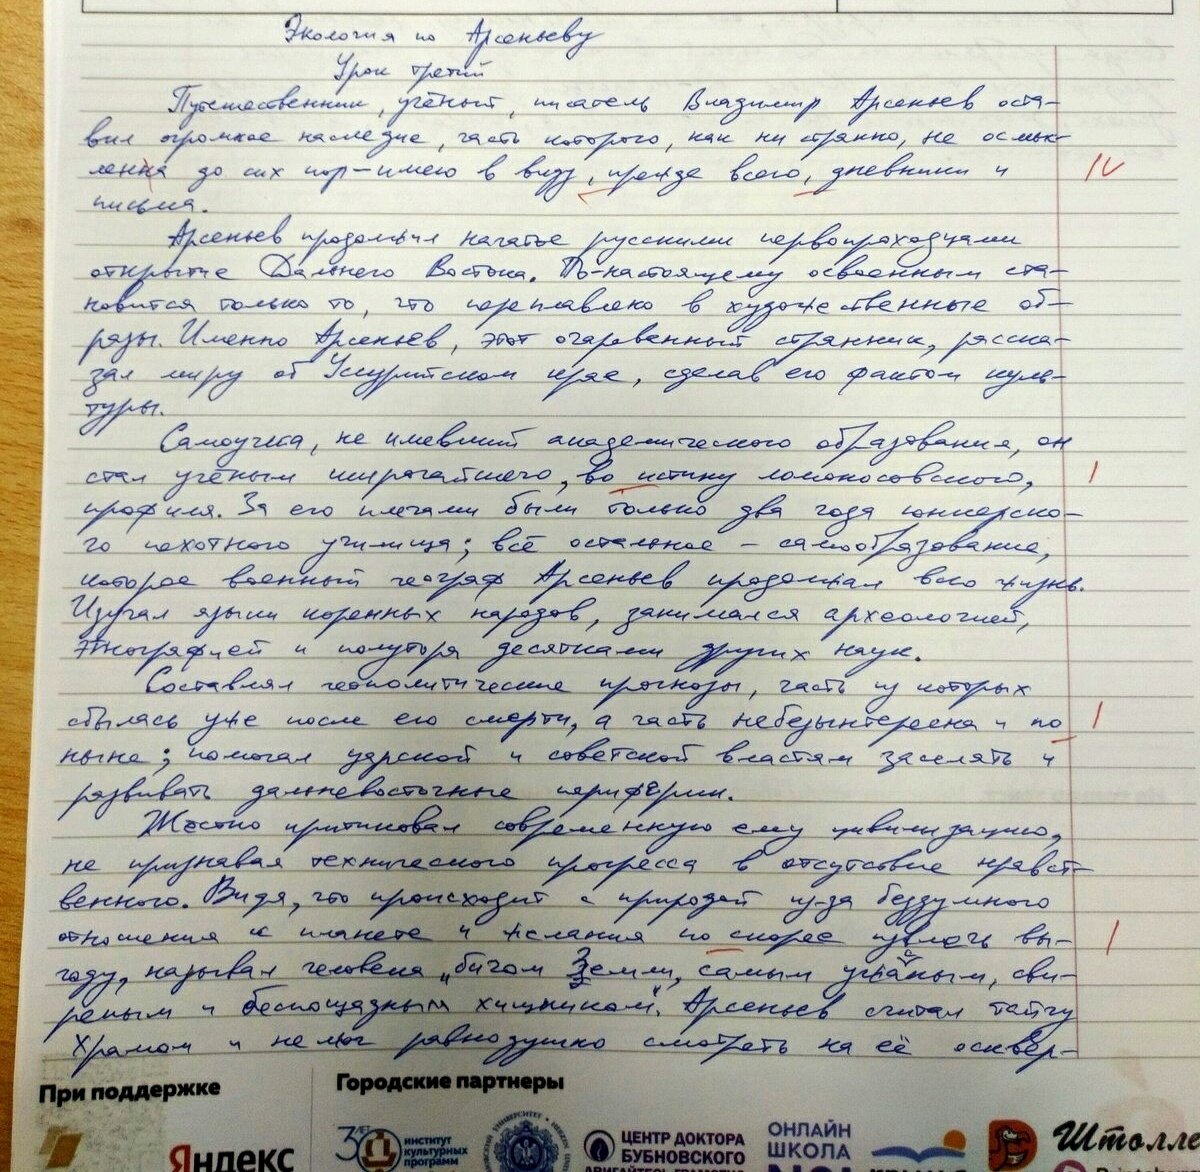 Экология по Арсеньеву
Урок третий
Путешественник, учёный, писатель Владимир Арсеньев оста-
вил огромное наследие, часть которого, как ни странно, не осмыс-
лена до сих пор-имею в виду, прежде всего, дневники и
письма.
IV
Арсеньев продолжил начатое русскими первопроходцами
открытие Дальнего Востока. По-настоящему освоенным ста-
новится только то, что переплавлено в художественные об-
разы. Именно Арсеньев, этот очарованный странник, расска-
зал миру об Уссурийском крае, сделав его фактом куль-
туры.
Самоучка, не имевший академического образования, он
стал учёным широчайшего, во истину ломоносовского,
I
профиля. За его плечами были только два года юнкерско-
го пехотного училища; всё остальное – самообразование,
которое военный географ Арсеньев продолжал всю жизнь.
Изучал языки коренных народов, занимался археологией,
этнографией и полутора десятками других наук.
Составлял геополитические прогнозы, часть из которых
сбылась уже после его смерти, а часть небезынтересна и по
I
ныне; помогал царской и советской властям заселять и
развивать дальневосточные периферии.
Жёстко критиковал современную ему цивилизацию,
не признавая технического прогресса в отсутствие нравст-
венного. Видя, что происходит с природой из-за бездумного
отношения к планете и желания по скорее извлечь вы-
I
году, называл человека „бичом Земли, самым ужасным, сви-
репым и беспощадным хищником". Арсеньев считал тайгу
храмом и не мог равнодушно смотреть на её осквер-
При поддержке
Городские партнеры
Яндекс
30 ЛЕТ
ИНСТИТУТ
КУЛЬТУРНЫХ
ПРОГРАММ
ЦЕНТР ДОКТОРА
БУБНОВСКОГО
ОНЛАЙН
ШКОЛА
№1
Штолле